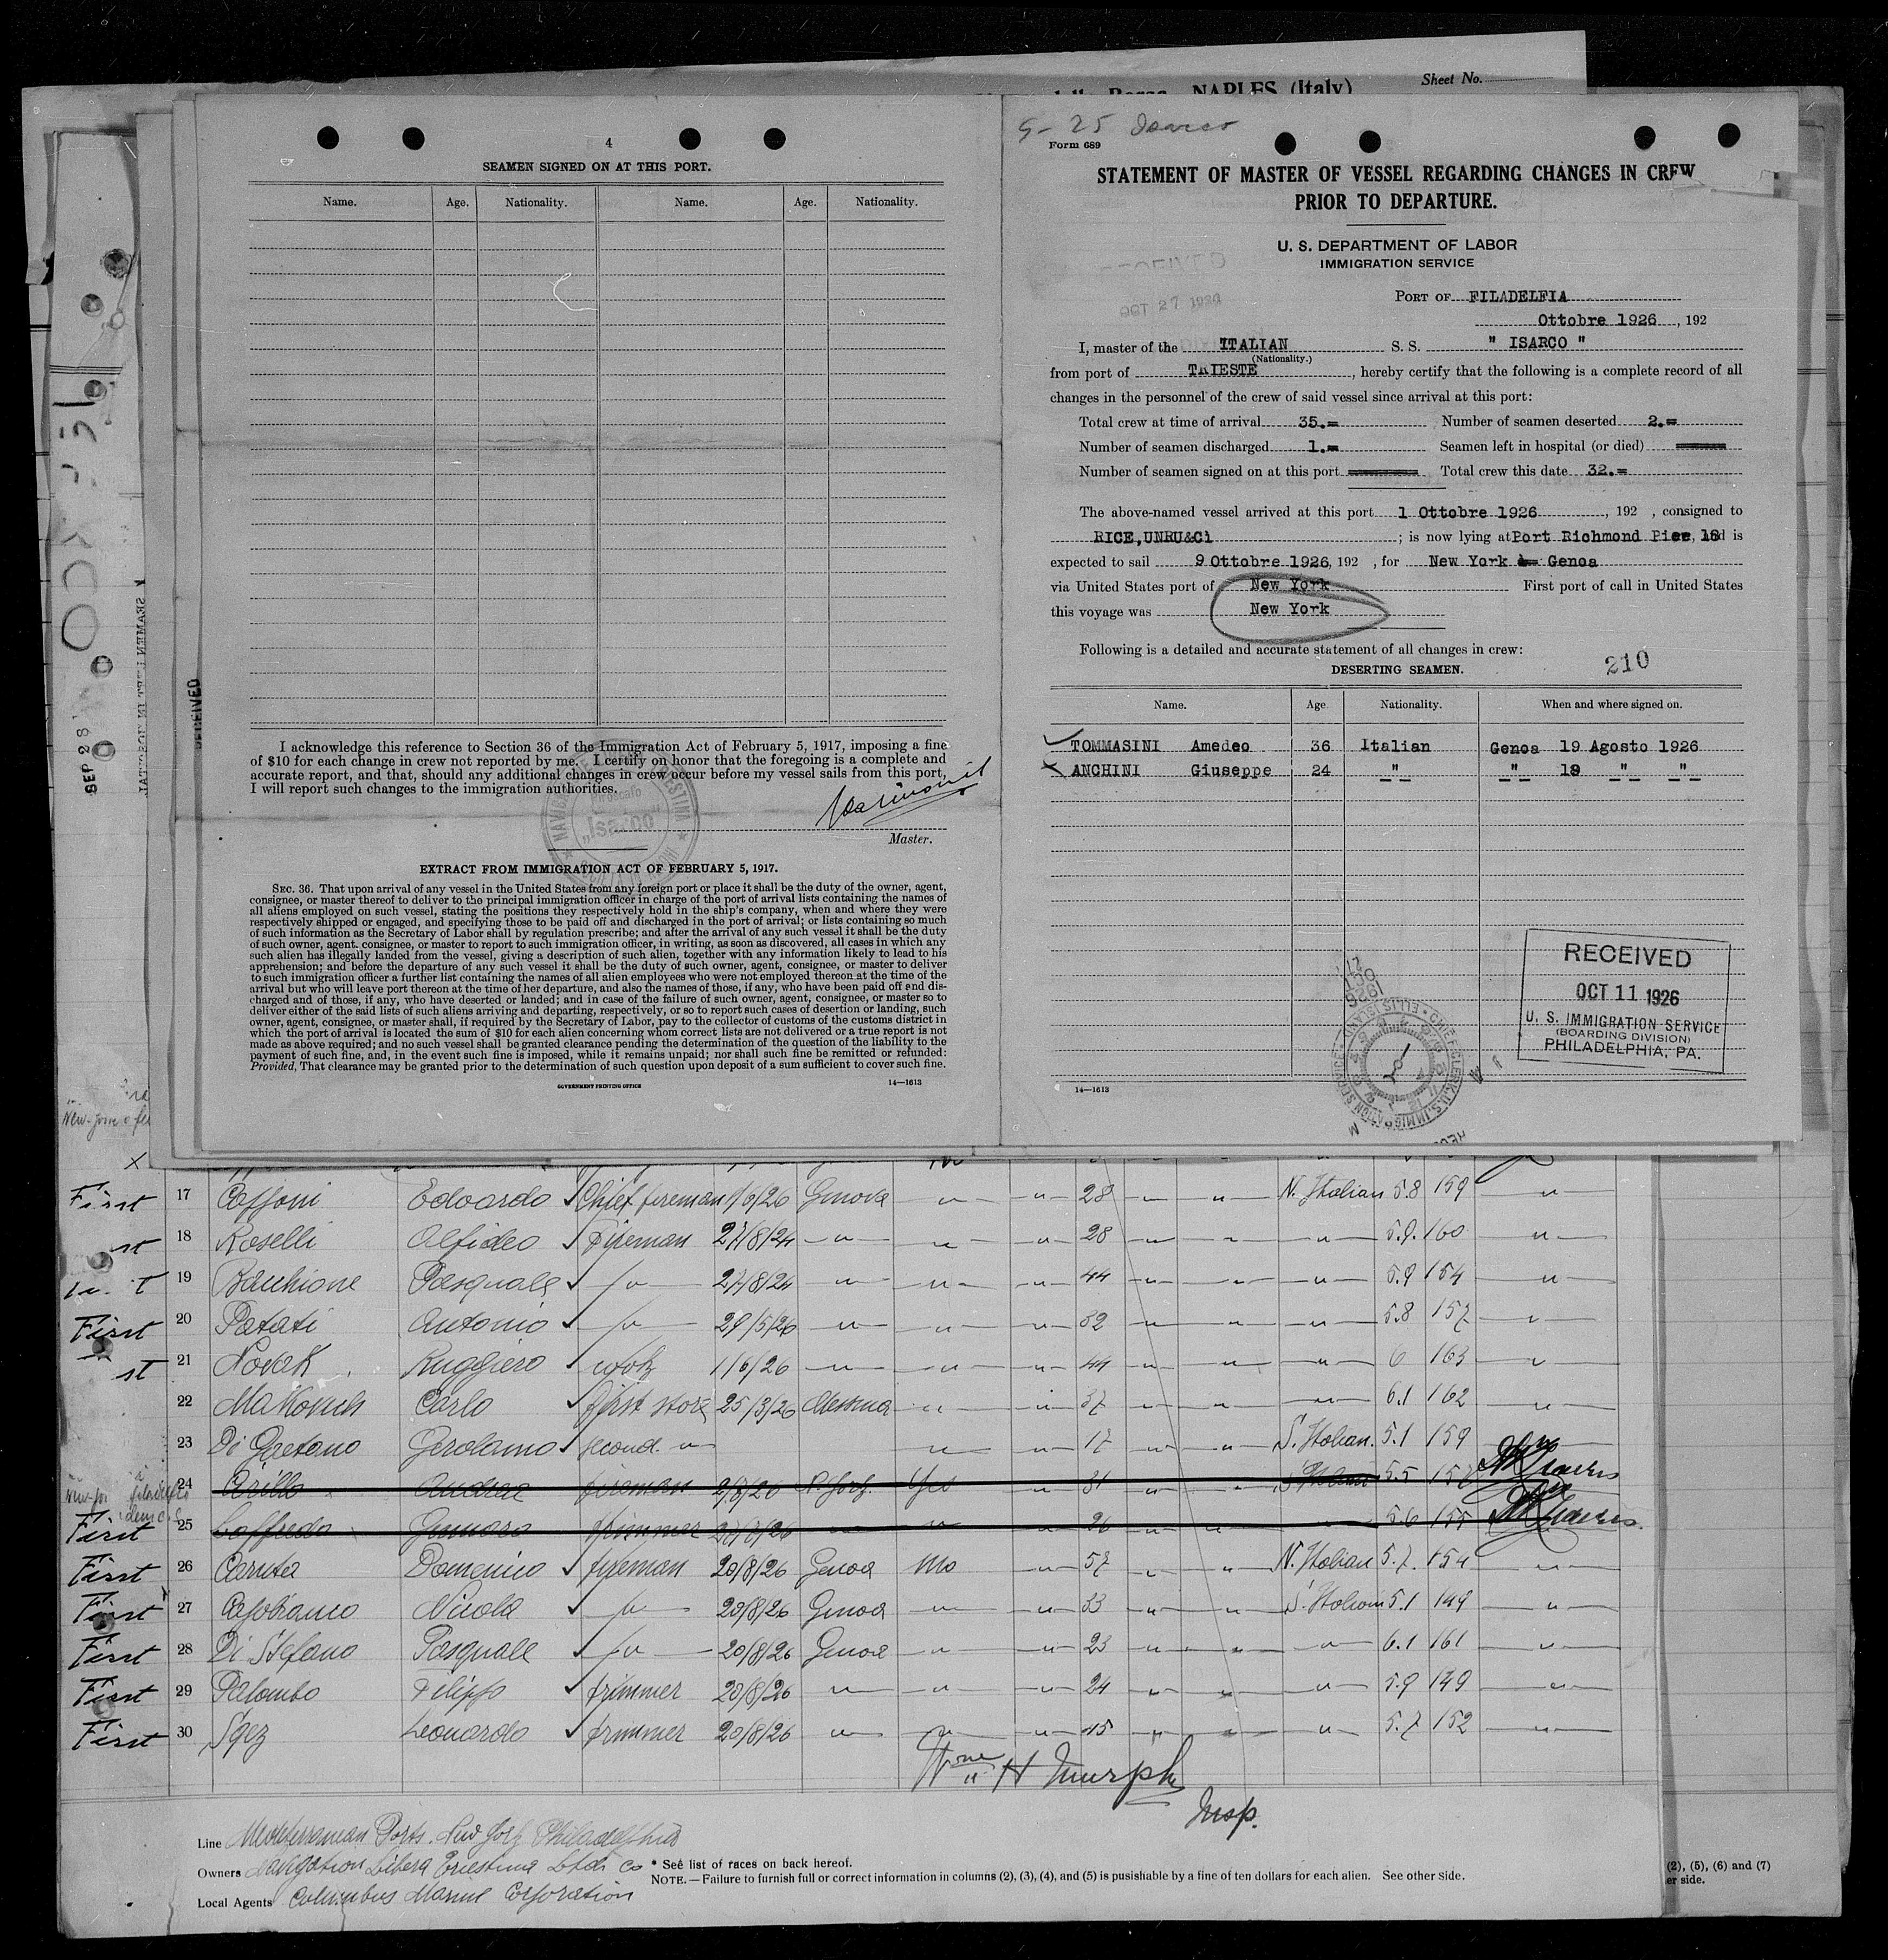 NAPLES (Italy)
Sheet No.
4
SEAMEN SIGNED ON AT THIS PORT.
Name. Age. Nationality. Name. Age. Nationality.
I acknowledge this reference to Section 36 of the Immigration Act of February 5, 1917, imposing a fine
of $10 for each change in crew not reported by me. I certify on honor that the foregoing is a complete and
accurate report, and that, should any additional changes in crew occur before my vessel sails from this port,
I will report such changes to the immigration authorities.
Piroscafo
"Isarco"
Master.
EXTRACT FROM IMMIGRATION ACT OF FEBRUARY 5, 1917.
SEC. 36. That upon arrival of any vessel in the United States from any foreign port or place it shall be the duty of the owner, agent,
consignee, or master thereof to deliver to the principal immigration officer in charge of the port of arrival lists containing the names of
all aliens employed on such vessel, stating the positions they respectively hold in the ship's company, when and where they were
respectively shipped or engaged, and specifying those to be paid off and discharged in the port of arrival; or lists containing so much
of such information as the Secretary of Labor shall by regulation prescribe; and after the arrival of any such vessel it shall be the duty
of such owner, agent. consignee, or master to report to such immigration officer, in writing, as soon as discovered, all cases in which any
such alien has illegally landed from the vessel, giving a description of such alien, together with any information likely to lead to his
apprehension; and before the departure of any such vessel it shall be the duty of such owner, agent, consignee, or master to deliver
to such immigration officer a further list containing the names of all alien employees who were not employed thereon at the time of the
arrival but who will leave port thereon at the time of her departure, and also the names of those, if any, who have been paid off and dis-
charged and of those, if any, who have deserted or landed; and in case of the failure of such owner, agent, consignee, or master so to
deliver either of the said lists of such aliens arriving and departing, respectively, or so to report such cases of desertion or landing, such
owner, agent, consignee, or master shall, if required by the Secretary of Labor, pay to the collector of customs of the customs district in
which the port of arrival is located the sum of $10 for each alien concerning whom correct lists are not delivered or a true report is not
made as above required; and no such vessel shall be granted clearance pending the determination of the question of the liability to the
payment of such fine, and, in the event such fine is imposed, while it remains unpaid; nor shall such fine be remitted or refunded:
Provided, That clearance may be granted prior to the determination of such question upon deposit of a sum sufficient to cover such fine.
GOVERNMENT PRINTING OFFICE 14—1613
Isarco
Form 689
STATEMENT OF MASTER OF VESSEL REGARDING CHANGES IN CREW
PRIOR TO DEPARTURE.
U. S. DEPARTMENT OF LABOR
IMMIGRATION SERVICE
OCT 27
PORT OF FILADELFIA
Ottobre 1926, 192
I, master of the ITALIAN S. S. " ISARCO "
(Nationality.)
from port of TRIESTE, hereby certify that the following is a complete record of all
changes in the personnel of the crew of said vessel since arrival at this port:
Total crew at time of arrival 35.= Number of seamen deserted 2.=
Number of seamen discharged 1.= Seamen left in hospital (or died)
Number of seamen signed on at this port Total crew this date 32.=
The above-named vessel arrived at this port 1 Ottobre 1926, 192 , consigned to
RICE,UNRU&Ci ; is now lying at Port Richmond Pier, 18 and is
expected to sail 9 Ottobre 1926, 192 , for New York Genoa
via United States port of New York First port of call in United States
this voyage was New York
Following is a detailed and accurate statement of all changes in crew:
DESERTING SEAMEN.
210
Name. Age. Nationality. When and where signed on.
TOMMASINI Amedeo 36 Italian Genoa 19 Agosto 1926
ANCHINI Giuseppe 24 -"- -"- 19 -"- -"-
RECEIVED
OCT 11 1926
U. S. IMMIGRATION SERVICE
(BOARDING DIVISION)
PHILADELPHIA, PA.
14—1613
SEP 28
RECEIVED
First 17 Caffoni Edoardo Chief fireman 1/6/26 Genova 28 N. Italian 5.8 159
18 Roselli Alfideo Fireman 27/8/24 28 5.9. 160
19 Pasquale 27/8/24 44 5.9 154
First 20 Patati Antonio 29/5/26 32 5.8 157
21 Novak Ruggiero 1/6/26 44 6 163
22 Carlo first 25/3/26 Messina 37 6.1 162
23 Di Gaetano Gerolamo second 17 S. Italian. 5.1 159
24 Andrea fireman Yes 31 5.5
First 25 trimmer 26 5.6 155
First 26 Caruta Domenico fireman 20/8/26 Genoa No 57 N. Italian 5.7. 154
First 27 Nicola 20/8/26 Genoa 33 S. Italian 5.1 149
First 28 Di Stefano Pasquale 20/8/26 Genoa 23 6.1 161
First 29 Palombo Filippo trimmer 20/8/26 24 5.9 149
First 30 Leonardo trimmer 20/8/26 45 5.7 152
H Murphy
Insp.
Line Mediterranean Ports. New York Philadelphia
Owners Navigation Libera Triestina Ltd Co * See list of races on back hereof.
NOTE.—Failure to furnish full or correct information in columns (2), (3), (4), and (5) is pusishable by a fine of ten dollars for each alien. See other side.
Local Agents Columbus Marine Corporation
(2), (5), (6) and (7)
er side.